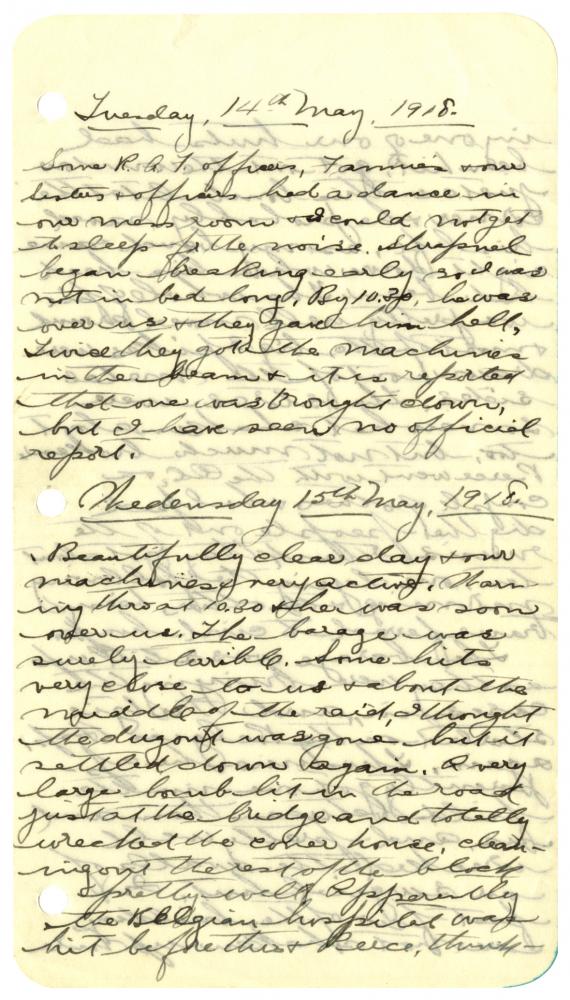 Tuesday, 14th May, 1918.
Some R.A.F. officers, Tammies & our
sisters & officers had a dance in
our mess room & I could not get
to sleep for the noise. Shrapnel
began breaking early so I was
not in bed long. By 10.30, he was
over us & they gave him hell,
Twice they got the machines
in the beam & it is reported
that one was brought down,
but I have seen no official
report.
Wedensday 15th May, 1918.
Beautifully clear day & our
machines very active. Warn-
ing thro at 10.30 & he was soon
over us. The barage was
surely terrible. Some hits
very close to us & about the
middle of the raid, I thought
the dugout was gone but it
settled down again. A very
large bomb lit in the road
just at the bridge and totally
wrecked the corner house, clean-
ing out the rest of the block
pretty well. Apperently
the Belgian hospital was
hit before this & Reece, think-